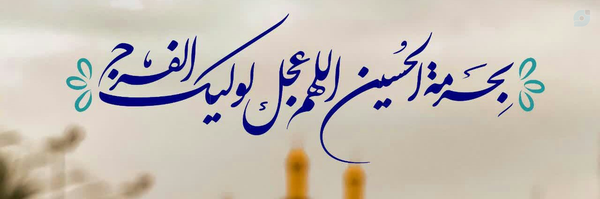 بِحرمة الحُسین اللهم عجل لولیک الفرج